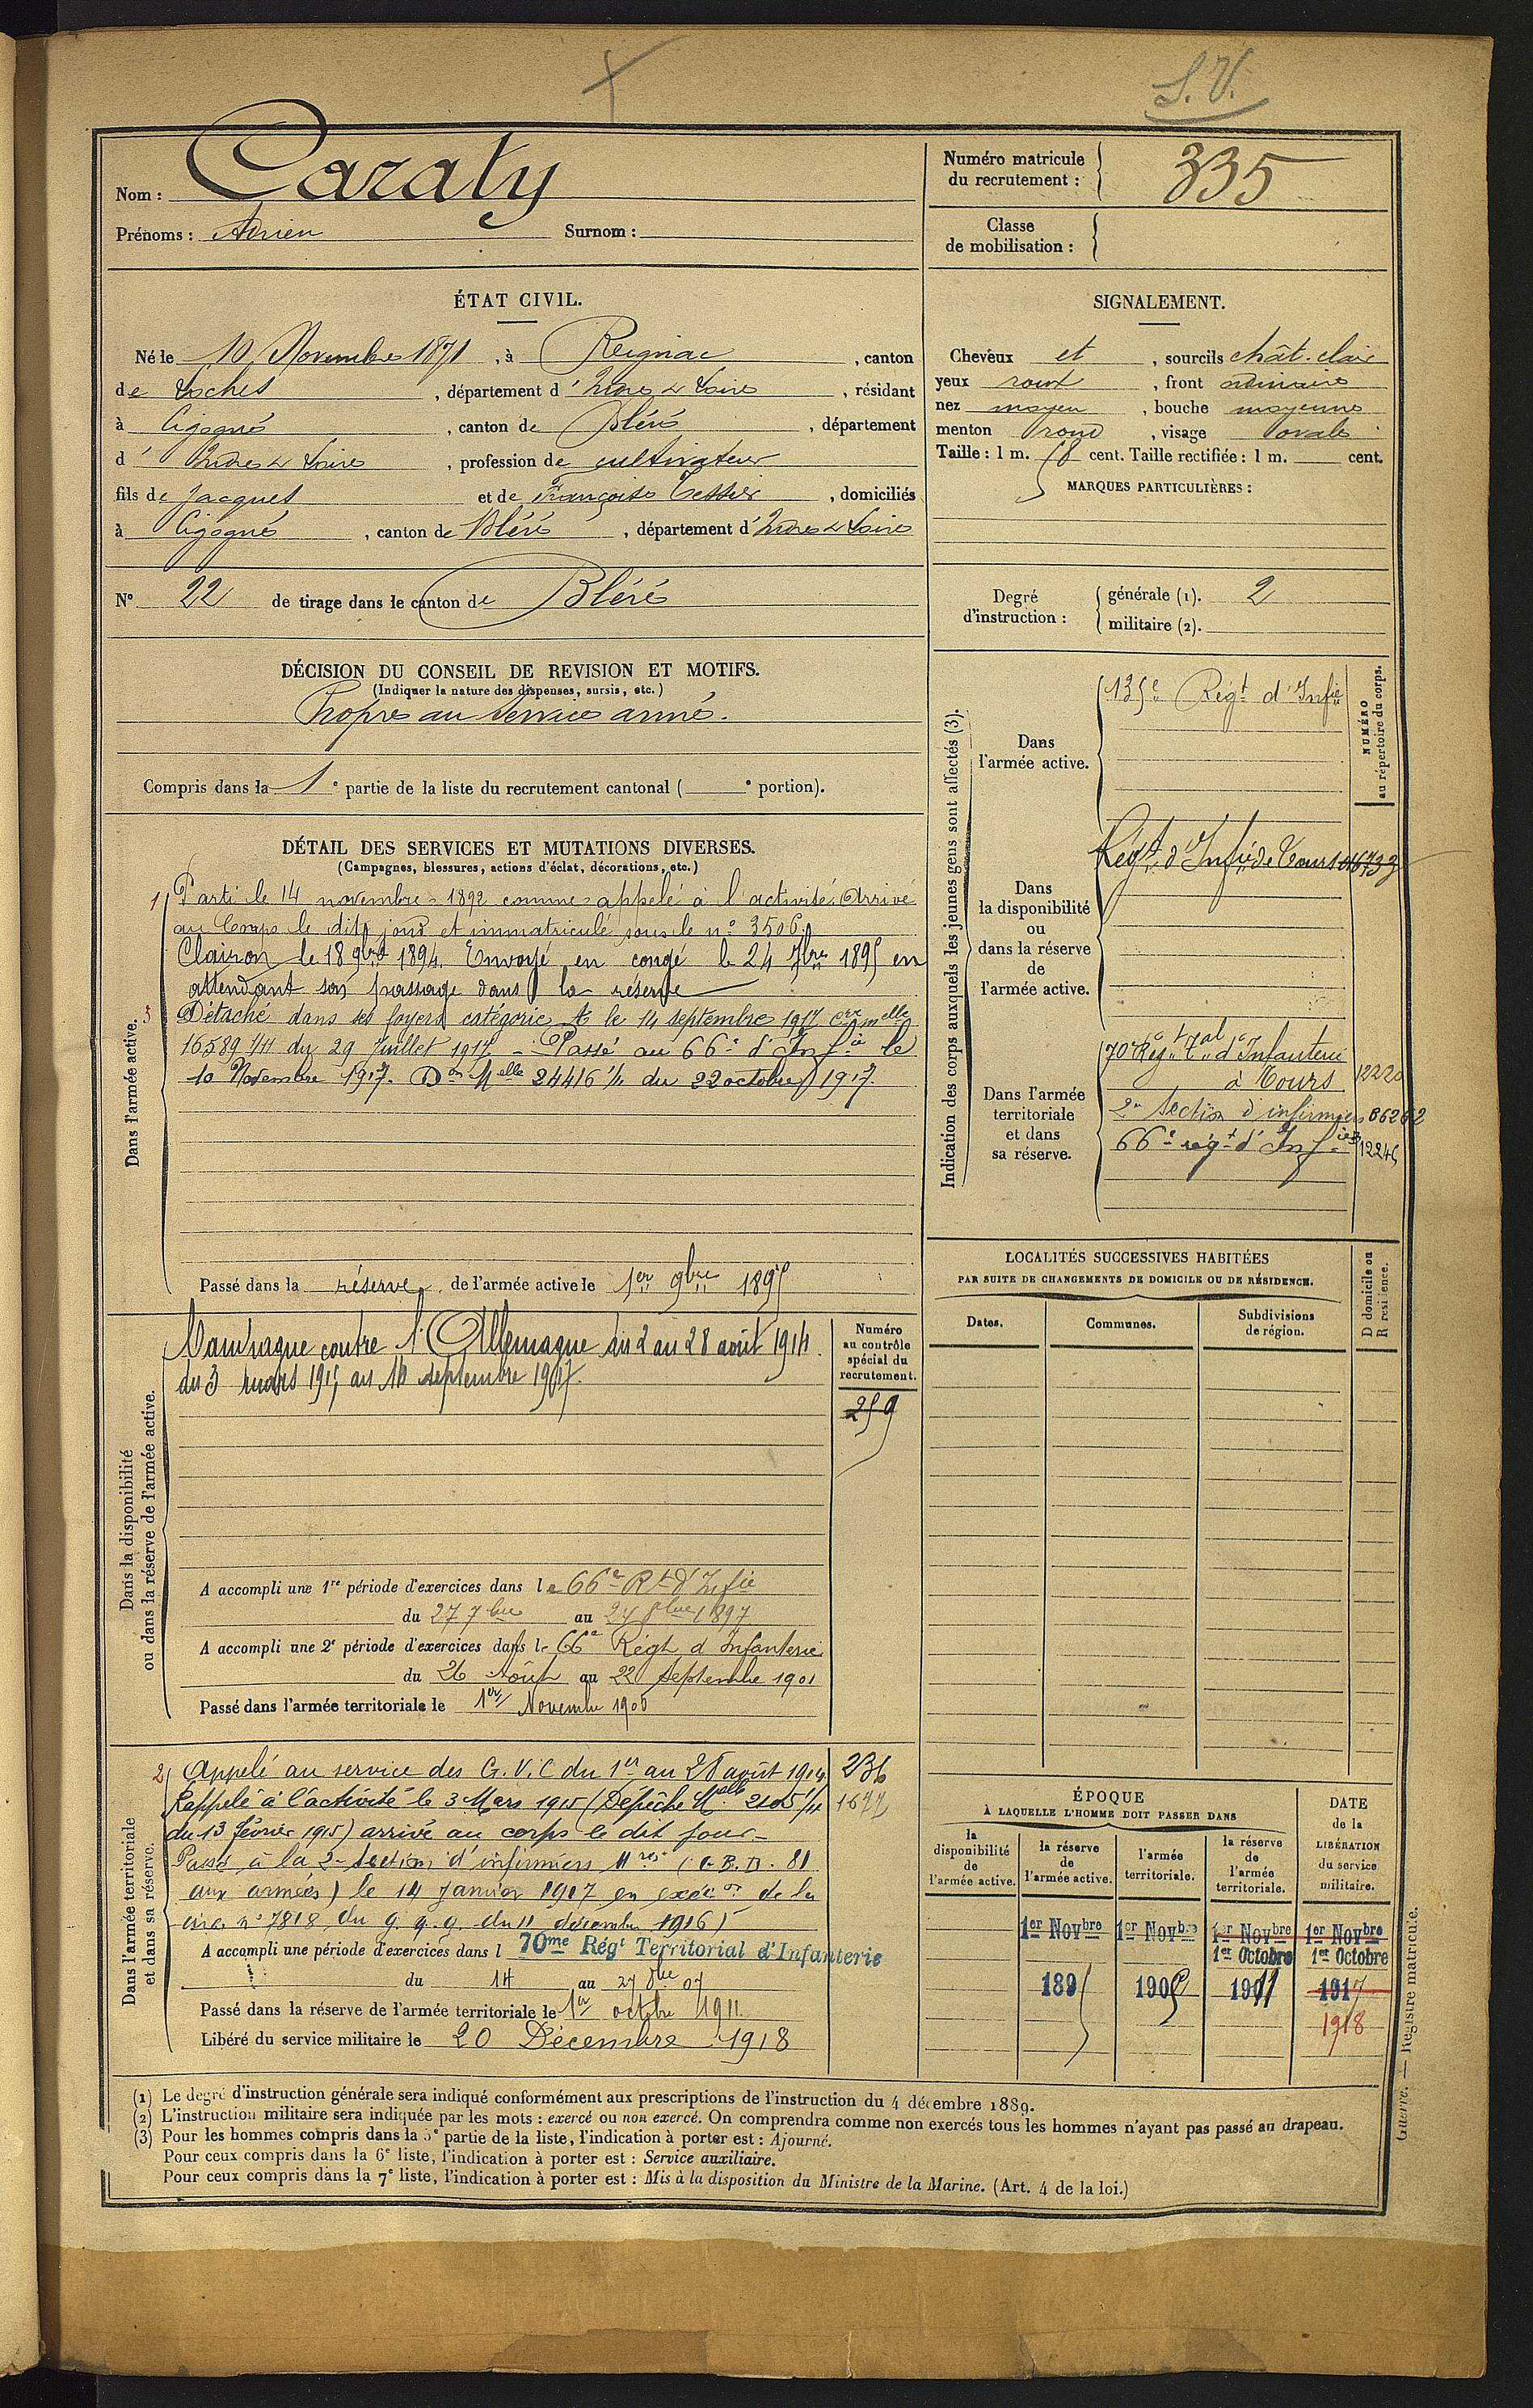 S. V.
Nom : Caraty
Prénoms : Adrien Surnom :
Numéro matricule du recrutement : 335
Classe de mobilisation :
ÉTAT CIVIL.
Né le 10 Novembre 1871, à Reignac, canton
de Loches, département d'Indre & Loire, résidant
à Cigogné, canton de Bléré, département
d'Indre & Loire, profession de cultivateur
fils de Jacques et de Françoise Tessier, domiciliés
à Cigogné, canton de Bléré, département d'Indre & Loire
N° 22 de tirage dans le canton de Bléré
SIGNALEMENT.
Cheveux et, sourcils chât. clair
yeux roux, front ordinaire
nez moyen, bouche moyenne
menton rond, visage ovale
Taille : 1 m. 58 cent. Taille rectifiée : 1 m. cent.
MARQUES PARTICULIÈRES :
Degré d'instruction : générale (1). 2
militaire (2).
DÉCISION DU CONSEIL DE REVISION ET MOTIFS.
(Indiquer la nature des dispenses, sursis, etc.)
Propre au service armé.
Compris dans la 1e partie de la liste du recrutement cantonal ( e portion).
DÉTAIL DES SERVICES ET MUTATIONS DIVERSES.
(Campagnes, blessures, actions d'éclat, décorations, etc.)
Dans l'armée active.
1 Parti le 14 novembre 1892 comme appelé à l'activité. Arrivé
au Corps le dit jour et immatriculé sous le n° 3506.
Clairon le 18 9bre 1894. Envoyé en congé le 24 7bre 1895 en
attendant son passage dans la réserve
3 Détaché dans ses foyers catégorie A le 14 septembre 1917 Cire melle
16589 1/11 du 29 Juillet 1917 - Passé au 66e d'Infie le
10 Novembre 1917. Don Melle 24416 1/11 du 22 octobre 1917.
Passé dans la réserve de l'armée active le 1er 9bre 1895
Dans la disponibilité
ou dans la réserve de l'armée active.
Campagne contre l'Allemagne du 2 au 28 août 1914.
du 3 mars 1915 au 14 septembre 1917.
Numéro au contrôle spécial du recrutement.
259
A accompli une 1re période d'exercices dans le 66e Rt d'Infie
du 27 7bre au 24 8bre 1897
A accompli une 2e période d'exercices dans le 66e Régt d'Infanterie
du 26 Août au 22 Septembre 1901
Passé dans l'armée territoriale le 1er Novembre 1905
Dans l'armée territoriale
et dans sa réserve.
2 Appelé au service des G.V.C du 1er au 28 août 1914 236
Rappelé à l'activité le 3 Mars 1915 (Dépêche Melle 2105 1/11 1677
du 13 février 1915) arrivé au corps le dit jour -
Passé à la 2e Section d'infirmiers Mres (G.B.D. 81
aux armées) le 14 Janvier 1917 en exécon de la
circ. n° 7818 du G.Q.G. du 11 décembre 1916)
A accompli une période d'exercices dans l 70me Régt Territorial d'Infanterie
du 14 au 27 8bre 07
Passé dans la réserve de l'armée territoriale le 1er octobre 1911.
Libéré du service militaire le 20 Décembre 1918
Indication des corps auxquels les jeunes gens sont affectés (3).
NUMÉRO au répertoire du corps.
Dans l'armée active.
135e Régt d'Infie
Dans la disponibilité ou dans la réserve de l'armée active.
Régt d'Infie de Tours
Dans l'armée territoriale et dans sa réserve.
70e Régt Tal d'Infanterie
à Tours 12220
2e Section d'infirmiers 06262
66e régt d'Infie 12245
LOCALITÉS SUCCESSIVES HABITÉES
PAR SUITE DE CHANGEMENTS DE DOMICILE OU DE RÉSIDENCE.
Dates. Communes. Subdivisions de région. D domicile ou R résidence.
ÉPOQUE
À LAQUELLE L'HOMME DOIT PASSER DANS
DATE de la LIBÉRATION du service militaire.
la disponibilité de l'armée active. la réserve de l'armée active. l'armée territoriale. la réserve de l'armée territoriale.
1er Novbre 1er Novbre 1er Novbre 1er Novbre
1er Octobre 1er Octobre
1895 1905 1911 1917
1918
(1) Le degré d'instruction générale sera indiqué conformément aux prescriptions de l'instruction du 4 décembre 1889.
(2) L'instruction militaire sera indiquée par les mots : exercé ou non exercé. On comprendra comme non exercés tous les hommes n'ayant pas passé au drapeau.
(3) Pour les hommes compris dans la 5e partie de la liste, l'indication à porter est : Ajourné.
Pour ceux compris dans la 6e liste, l'indication à porter est : Service auxiliaire.
Pour ceux compris dans la 7e liste, l'indication à porter est : Mis à la disposition du Ministre de la Marine. (Art. 4 de la loi.)
Guerre. — Registre matricule.